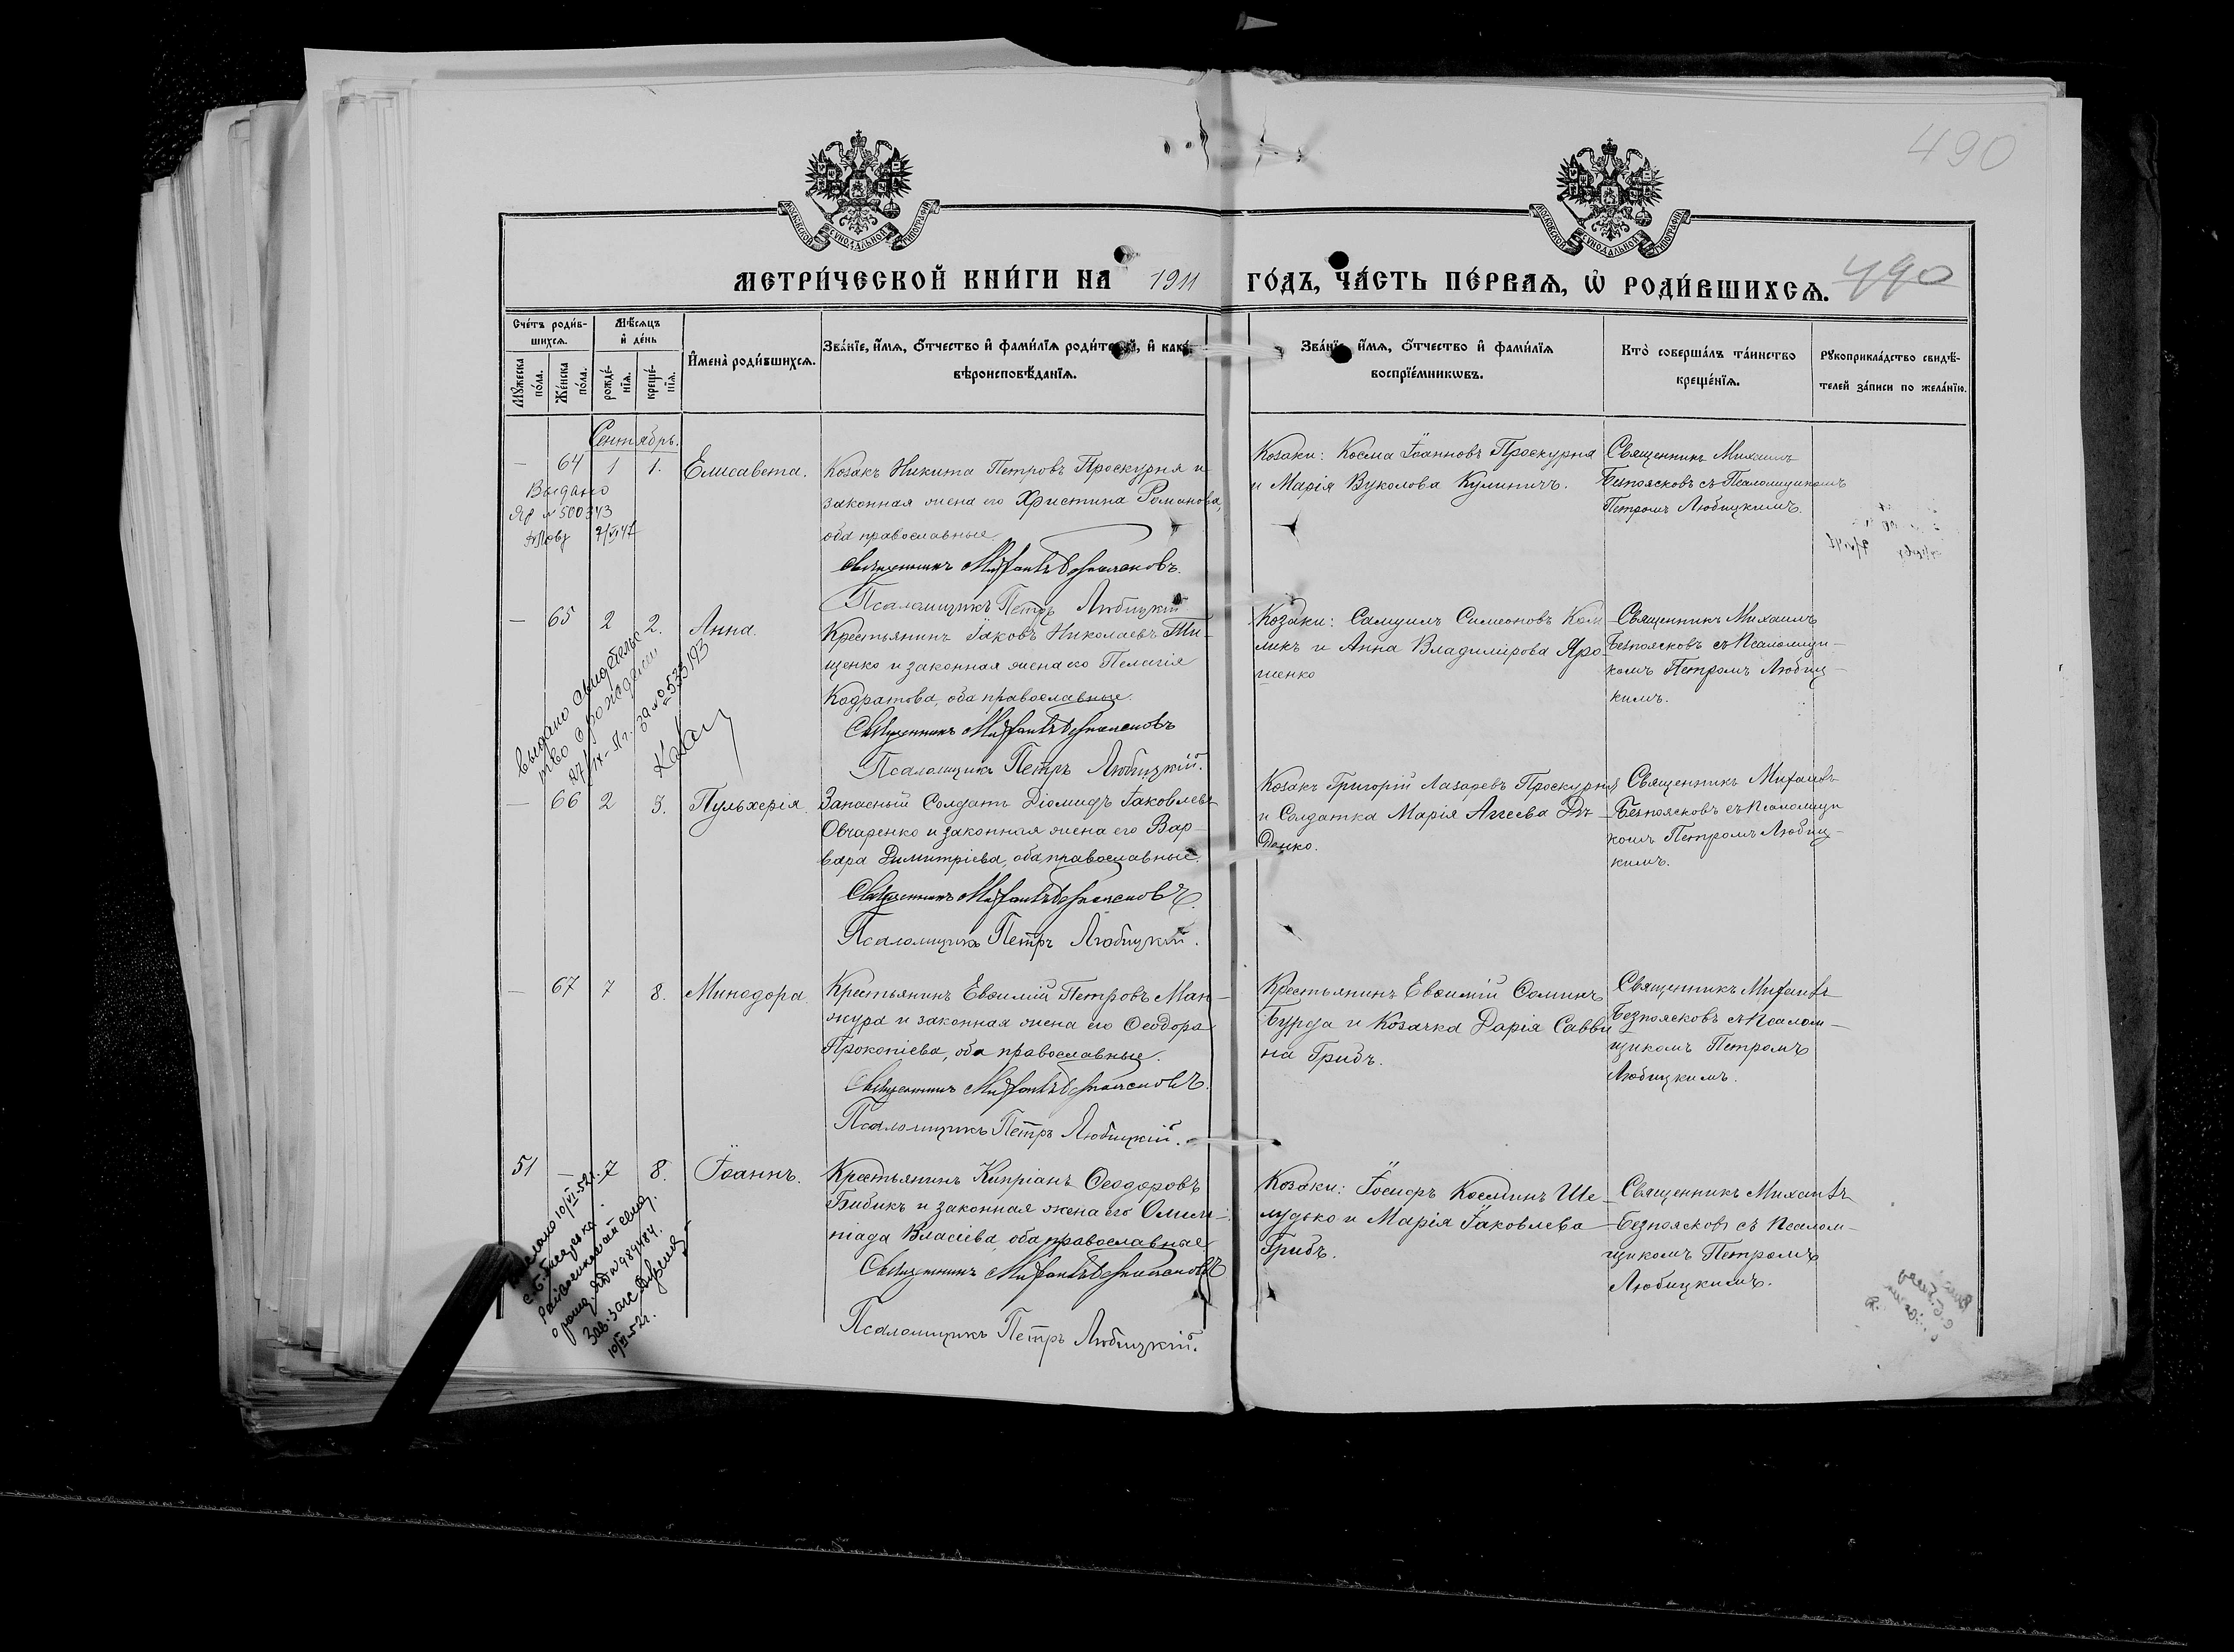 490
МОСКОВСКОЙ СУНОДАЛЬНОЙ ТИПОГРАФІИ
МОСКОВСКОЙ СУНОДАЛЬНОЙ ТИПОГРАФІИ
МЕТРИ́ЧЕСКОЙ КНИ́ГИ НА 1911 ГО́ДЪ, ЧА́СТЬ ПЕ́РВАѦ, Ѡ҆ РОДИ́ВШИХСѦ.
490
Сче́тъ роди́в-
шихсѧ.
Мꙋ́жеска по́ла.
Же́нска по́ла.
Мѣ́сѧцъ
и҆ де́нь
рожде́-
нїѧ.
креще́-
нїѧ.
И҆мена̀ роди́вшихсѧ.
Зва́нїе, и҆́мѧ, ѻ҆́тчество и҆ фами́лїѧ роди́телей, и҆ како́го
вѣроисповѣ́данїѧ.
Зва́нїе, и҆́мѧ, ѻ҆́тчество и҆ фами́лїѧ
воспрїе́мникѡвъ.
Кто̀ соверша́лъ та́инство
креще́нїѧ.
Рꙋкоприкла́дство свидѣ́-
телей за́писи по жела́нїю.
Сентябрь.
— 64 1 1. Елисавета.
Козакъ Никита Петровъ Проскурня и
законная жена его Христина Романова,
оба православные
Священникъ Михаилъ Безпоясковъ.
Псаломщикъ Петръ Любицкій
Козаки: Косма Іоанновъ Проскурня
и Марія Вуколова Кулиничъ.
Священникъ Михаилъ
Безпоясковъ съ Псаломщикомъ
Петромъ Любицкимъ.
Выдано
№ 500343
7/VI 47
— 65 2 2. Анна.
Крестьянинъ Іаковъ Николаевъ Ти-
щенко и законная жена его Пелагія
Кодратова, оба православные.
Священникъ Михаилъ Безпоясковъ
Псаломщикъ Петръ Любицкій.
Козаки: Самуилъ Симеоновъ Ком
ликъ и Анна Владимірова Яро-
шенко
Священникъ Михаилъ
Безпоясковъ съ Псаломщи-
комъ Петромъ Любиц-
кимъ.
выдано свидетельс
тво о рождении
27/IX-51 г. за № 533193
— 66 2 3. Пульхерія.
Запасный Солдатъ Діомидъ Іаковлевъ
Овчаренко и законная жена его Вар-
вара Димитріева, оба православные.
Священникъ Михаилъ Безпоясковъ.
Псаломщикъ Петръ Любицкій.
Козакъ Григорій Лазаревъ Проскурня
и Солдатка Марія Аггеева Дѣ-
денко.
Священникъ Михаилъ
Безпоясковъ съ Псаломщи
комъ Петромъ Любиц-
кимъ.
— 67 7 8. Минодора.
Крестьянинъ Евѳимій Петровъ Ман-
жура и законная жена его Ѳеодора
Прокопіева, оба православные.
Священникъ Михаилъ Безпоясковъ.
Псаломщикъ Петръ Любицкій.
Крестьянинъ Евѳимій Ѳоминъ
Бурда и Козачка Дарія Савви
на Грибъ.
Священникъ Михаилъ
Безпоясковъ съ Псалом-
щикомъ Петромъ
Любицкимъ.
51 — 7 8. Іоаннъ.
Крестьянинъ Кипріанъ Ѳеодоровъ
Бибикъ и законная жена его Олим-
піада Власіева, оба православные
Священникъ Михаилъ Безпоясковъ
Псаломщикъ Петръ Любицкій.
Козаки: Іосифъ Косминъ Ше-
лудько и Марія Іаковлева
Грибъ.
Священникъ Михаилъ
Безпоясковъ съ Псалом-
щикомъ Петромъ
Любицкимъ.
10/VI-52 г.
№ 989484.
Зав. загс
10/VI-52 г.